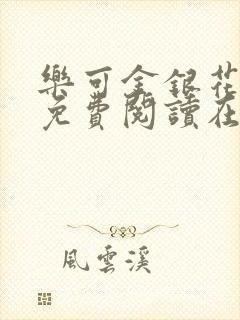 樂可金銀花
免費閱讀在
風雲溪